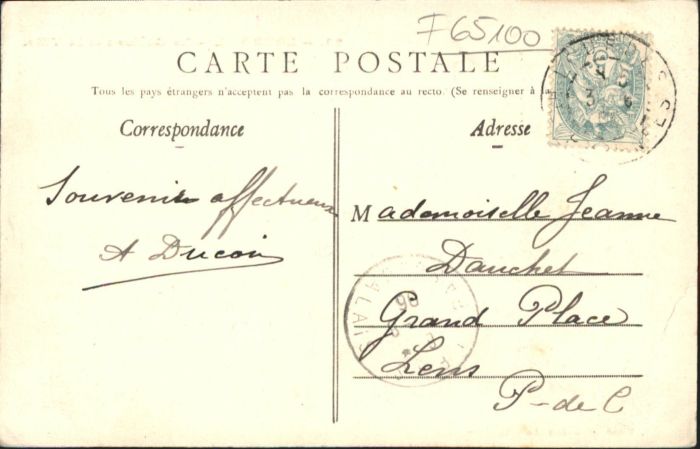 F65100
CARTE POSTALE
Tous les pays étrangers n'acceptent pas la correspondance au recto. (Se renseigner à la
Correspondance
Adresse
Souvenir affectueux
A Ducoin
Mademoiselle Jeanne
Dauchet
Grand Place
Lens
P-de C
CALAIS